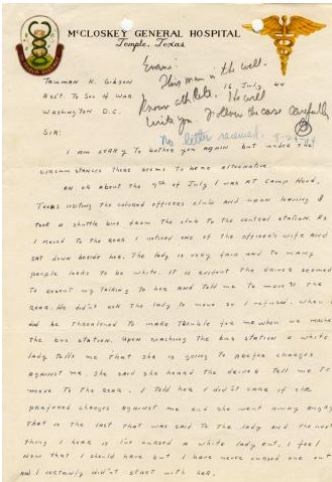 McCLOSKEY GENERAL HOSPITAL
Temple, Texas
This man is the well-
16 July 44
TRUMAN K. GIBSON
know athlete. He will
Asst. To Sec of War
write you. Follow the case carefully
WASHINGTON D.C.
No letter received. 8-24-44
SIR:
I AM SORRY TO bother you AGAIN but under the
circumstances there seems to be no alternative
ON OR about the 7th of July I WAS AT CAMP Hood,
TEXAS visiting the colored officers club AND upon leaving I
took A shuttle bus from the club to the central station. AS
I moved to the REAR I noticed one of the officer's wife AND
SAT down beside her. The lady is very fair AND to many
people looks to be white. It is evident the driver seemed
to resent my talking to her AND told me to move to the
REAR. He didn't ASK the lady to move so I refused. When I
did he threatened to make trouble for me when we reached
the bus station. Upon reaching the bus station a white
lady tells me that she is going to prefer charges
AGAINST me. She said she heard the driver tell me to
move to the REAR. I told her I didn't care if she
preferred charges AGAINST me AND she went away angry
That is the last that was said to the lady and the next
thing I hear is I've cursed a white lady out. I feel
now that I should have but I have never cursed one out
AND I certainly didn't start with her.